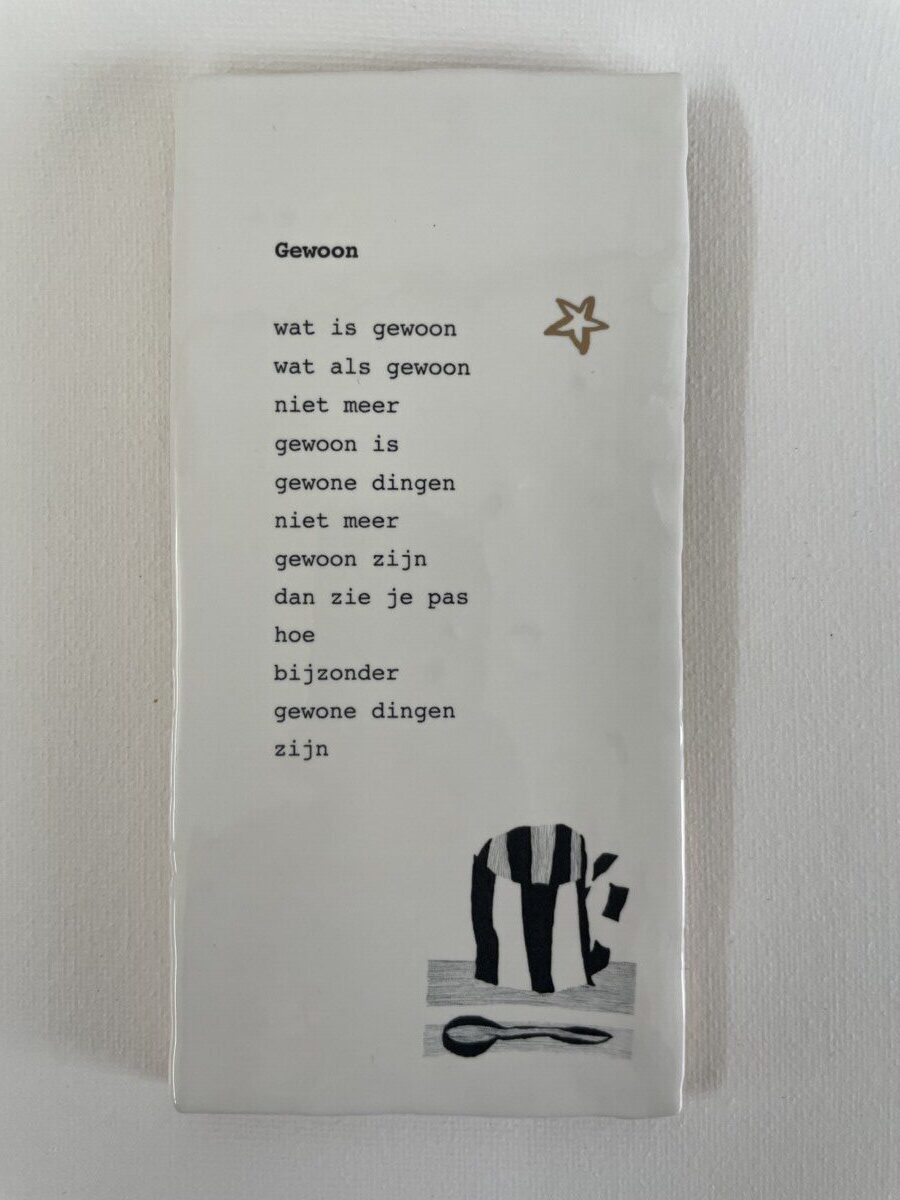 Gewoon
wat is gewoon
wat als gewoon
niet meer
gewoon is
gewone dingen
niet meer
gewoon zijn
dan zie je pas
hoe
bijzonder
gewone dingen
zijn